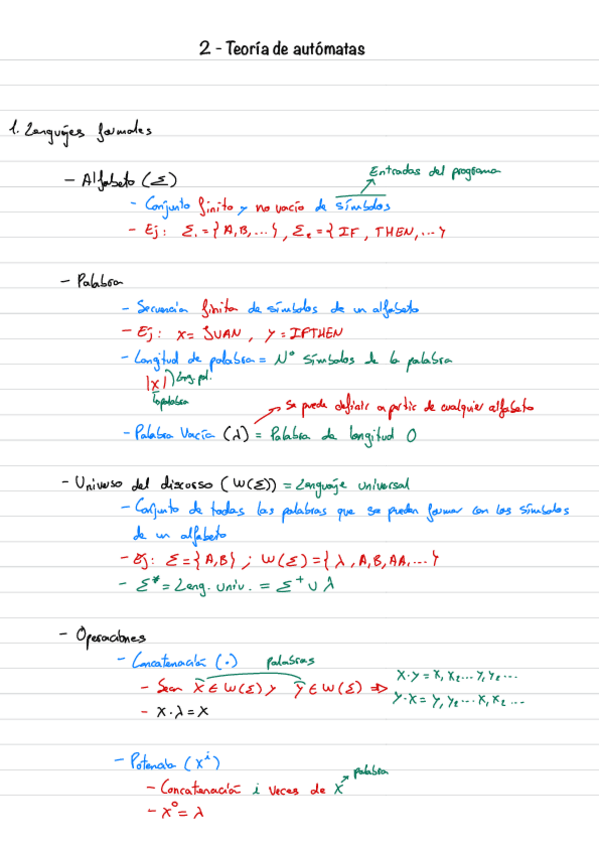 2 - Teoría de autómatas
1. Lenguajes formales
- Alfabeto (Σ)
Entradas del programa
- Conjunto finito y no vacío de símbolos
- Ej: Σ₁ = {A,B,...}, Σ₂ = {IF, THEN,...}
- Palabra
- Secuencia finita de símbolos de un alfabeto
- Ej: x = JUAN, y = IFTHEN
- Longitud de palabra = Nº símbolos de la palabra
|x| Long. pal.
palabra
Se puede definir a partir de cualquier alfabeto
- Palabra Vacía (λ) = Palabra de longitud 0
- Universo del discurso (W(Σ)) = Lenguaje universal
- Conjunto de todas las palabras que se pueden formar con los símbolos
de un alfabeto
- Ej: Σ = {A,B} ; W(Σ) = {λ, A, B, AA,...}
- Σ* = Leng. univ. = Σ⁺ ∪ λ
- Operaciones
- Concatenación (·) palabras
- Sean x ∈ W(Σ) y y ∈ W(Σ) ⇒ x·y = x₁x₂...y₁y₂...
y·x = y₁y₂...x₁x₂...
- x·λ = x
- Potencia (xⁱ)
palabra
- Concatenación i veces de x
- x⁰ = λ